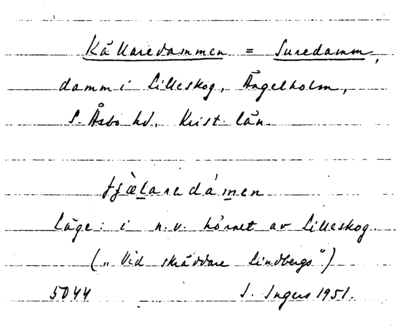 Källaredammen = Suredamm,
damm i Lilleskog, Ängelholm,
S. Åsbo hd, Krist. län.
tjæ̀laredámen
Läge: i n.v. hörnet av Lilleskog.
("Vid skräddare Lindbergs")
5044 I. Ingers 1951.